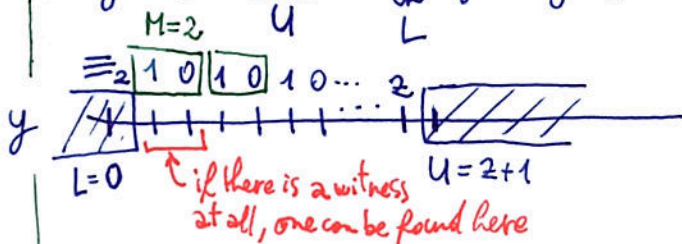 M=2 U L
≡₂ 1 0 1 0 1 0 ... z
y ...
L=0 U=z+1
if there is a witness
at all, one can be found here